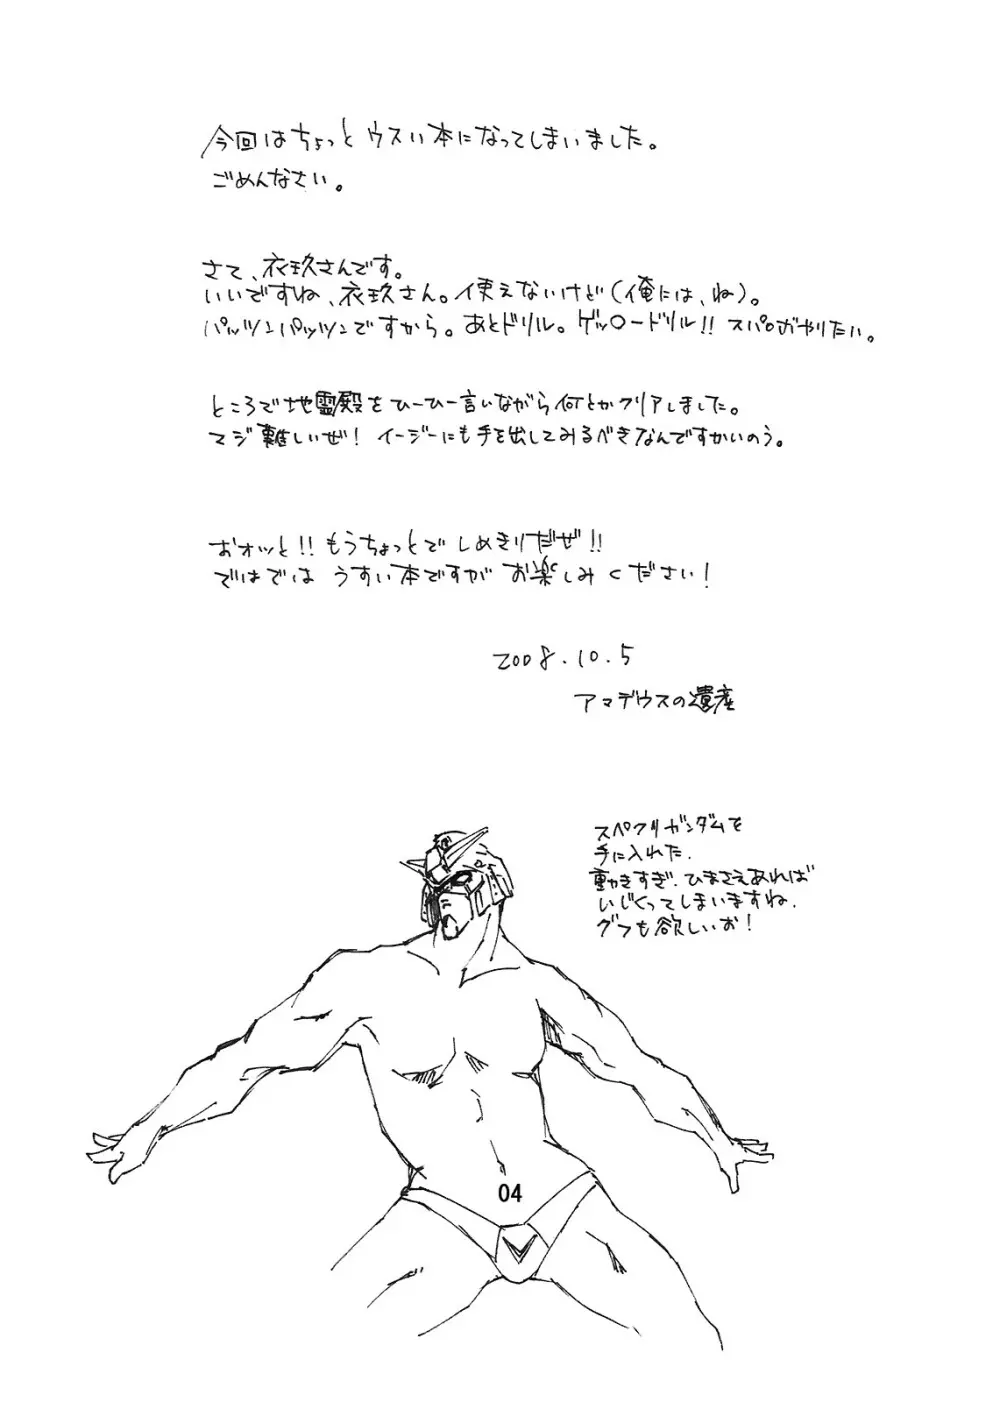 今回はちょっとウスい本になってしまいました。
ごめんなさい。
さて、衣玖さんです。
いいですね、衣玖さん。使えないけど(俺には、ね)。
パッツンパッツンですから。あとドリル。ゲッ○ードリル!! スパロボやりたい。
ところで地霊殿をひーひー言いながら何とかクリアしました。
マジ難しいぜ! イージーにも手を出してみるべきなんですかいのう。
おオッと!! もうちょっとでしめきりだぜ!!
ではでは うすい本ですが お楽しみください!
2008.10.5
アマデウスの遺産
スペクリガンダムを
手に入れた.
動きすぎ.ひまさえあれば
いじくってしまいますね.
グフも欲しいお!
04